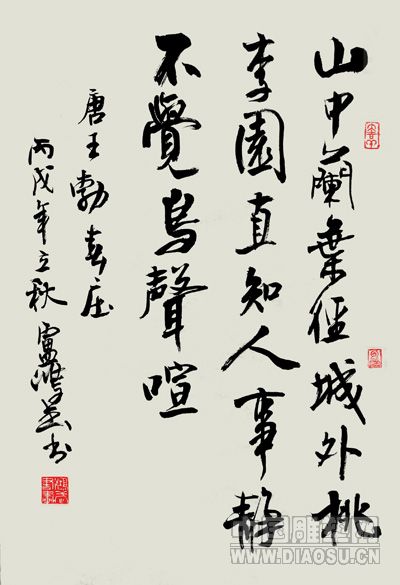 山中蘭葉徑城外桃
李園直知人事靜
不覺鳥聲喧
唐王勃春庄
丙戌年立秋盧书
中国雕塑网
WWW.DIAOSU.CN